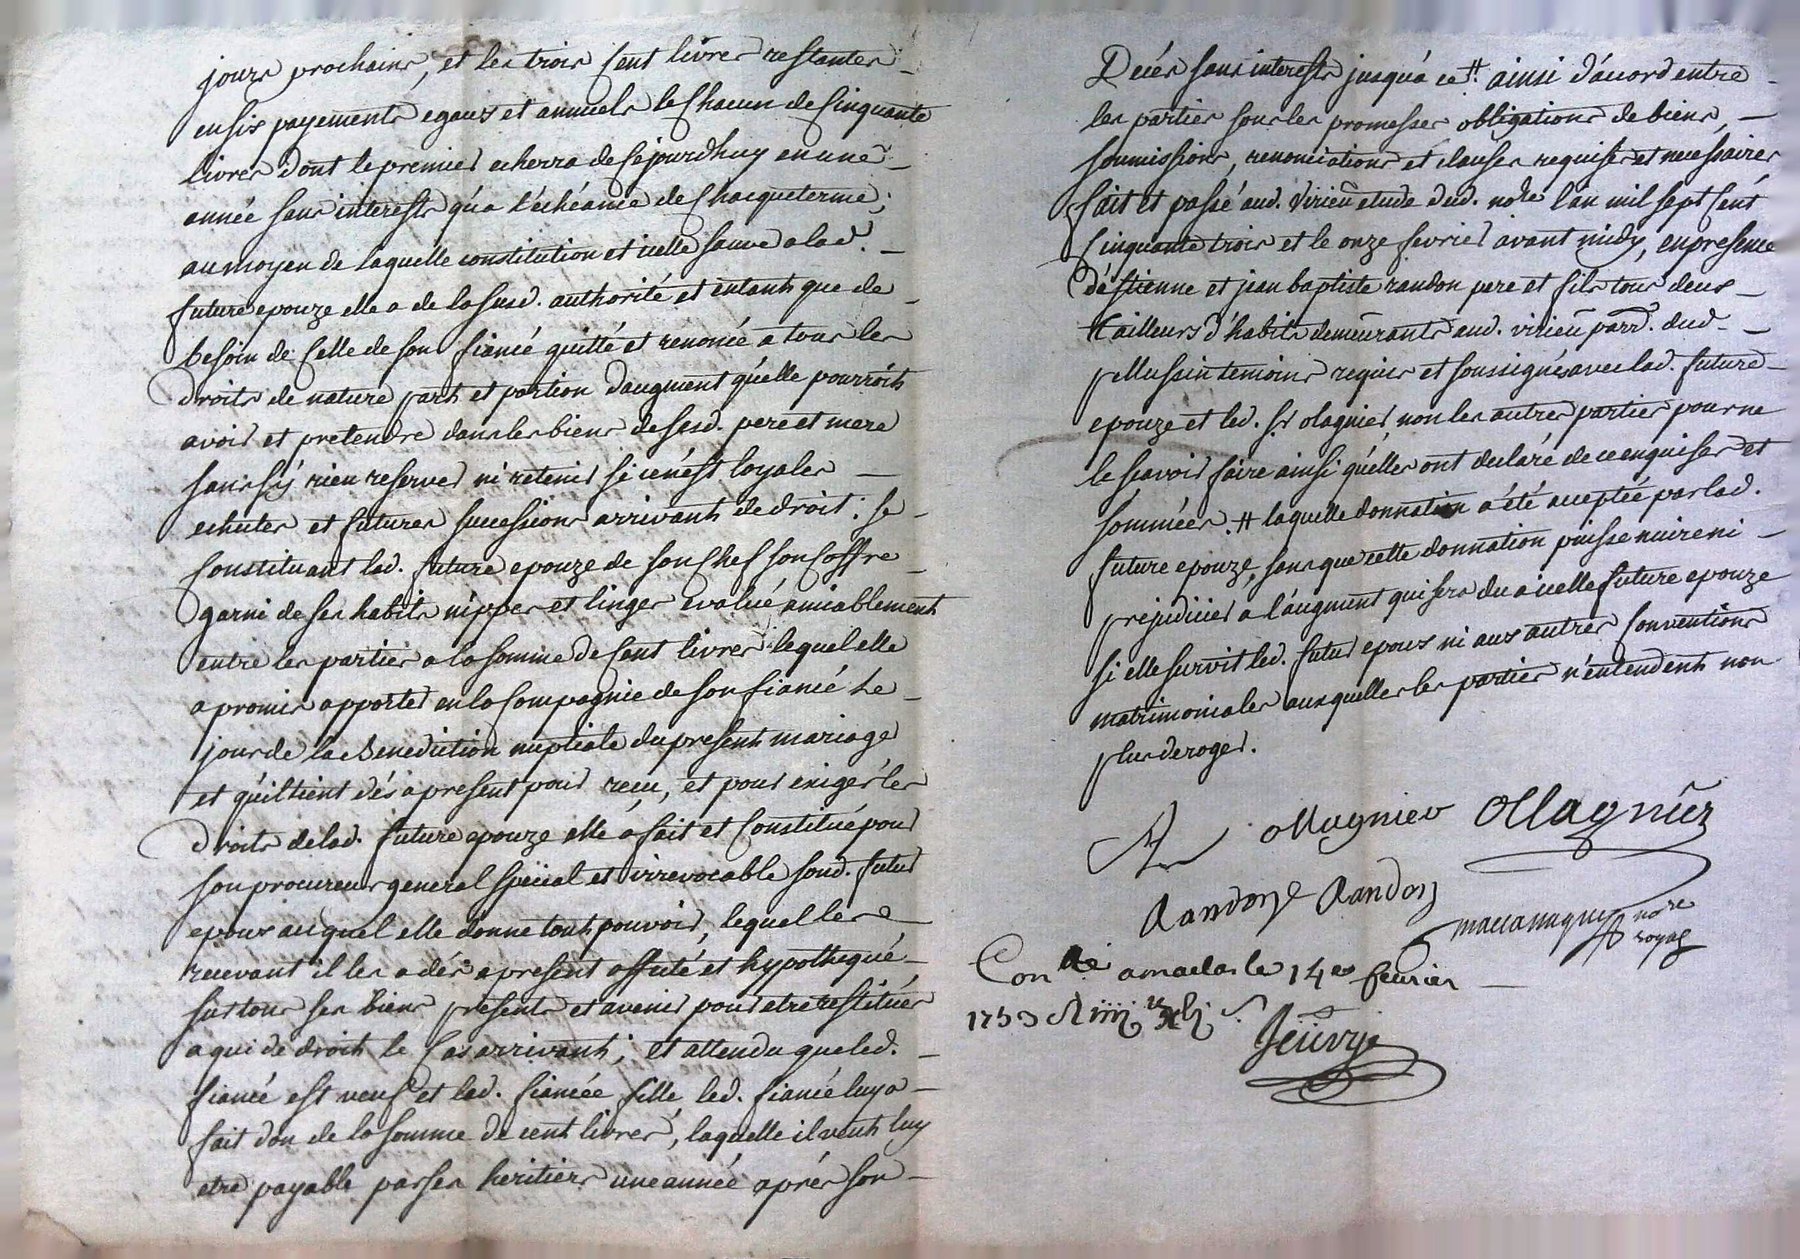 jours prochains, et les trois cent livres restantes
en six payements egaux et annuels le chacun de cinquante
livres dont le premier echerra de cejourdhuy en une
année sans interests qu'a l'échéance de chacque terme;
au moyen de laquelle constitution et icelle sauve a lad.
future epouze elle a de la susd. authorité et entant que de
besoin de celle de son fiancé quitté et renoncé a tous les
droits de nature part et portion daugment qu'elle pourroit
avoir et pretendre dans les biens de sesd. pere et mere
sans s'y rien reserver ni retenir si ce n'est loyales
echutes et futures successions arrivants de droit; se
constituant lad. future epouze de son chef son coffre
garni de ses habits nippes et linges evalué amiablement
entre les parties a la somme de cent livres lequel elle
a promis apporter en la compagnie de son fiancé le
jour de la benediction nuptiale du present mariage
et qu'il tient dés a present pour recu, et pour exiger les
droits de lad. future epouze elle a fait et constitué pour
son procureur general special et irrevocable sond. futur
epoux auquel elle donne tout pouvoir, lequel les
recevant il les a dés a present affuté et hypothequé
sur tous ses biens presents et avenir pour etre restitués
a qui de droit le cas arrivant; et attendu que led.
fiancé est veuf et lad. fiancée fille led. fiancé luy a
fait don de la somme de cent livres, laquelle il veut luy
etre payable par ses heritiers une année aprés son
Decés sans interests jusqu'a ce # ainsi d'accord entre
les parties sous les promesses obligations de biens,
soumissions, renonciations et clauses requises et necessaires
fait et passé aud. Virieu etude dud. nore l'an mil sept cent
cinquante trois et le onze fevrier avant midy, en presence
d'estienne et jean baptiste randon pere et fils tous deux
tailleurs d'habits demeurants aud. virieu parr. dud.
pellussin temoins requis et soussignés avec lad. future
epouze et led. sr olagnier, non les autres parties pour ne
le scavoir faire ainsi qu'elles ont declaré de ce enquises et
sommées. # laquelle donnation a été aceptée par lad.
future epouze, sans que cette donnation puisse nuire ni
prejudicier a l'augment qui sera du a icelle future epouze
si elle survit led. futur epoux ni aux autres conventions
matrimoniales auxquelles les parties n'entendent non
plus deroger.
ollagnier Ollagnier
Randon Randon
nore
royal
Conlé a maclas le 14e fevrier
1753
Jeüvry